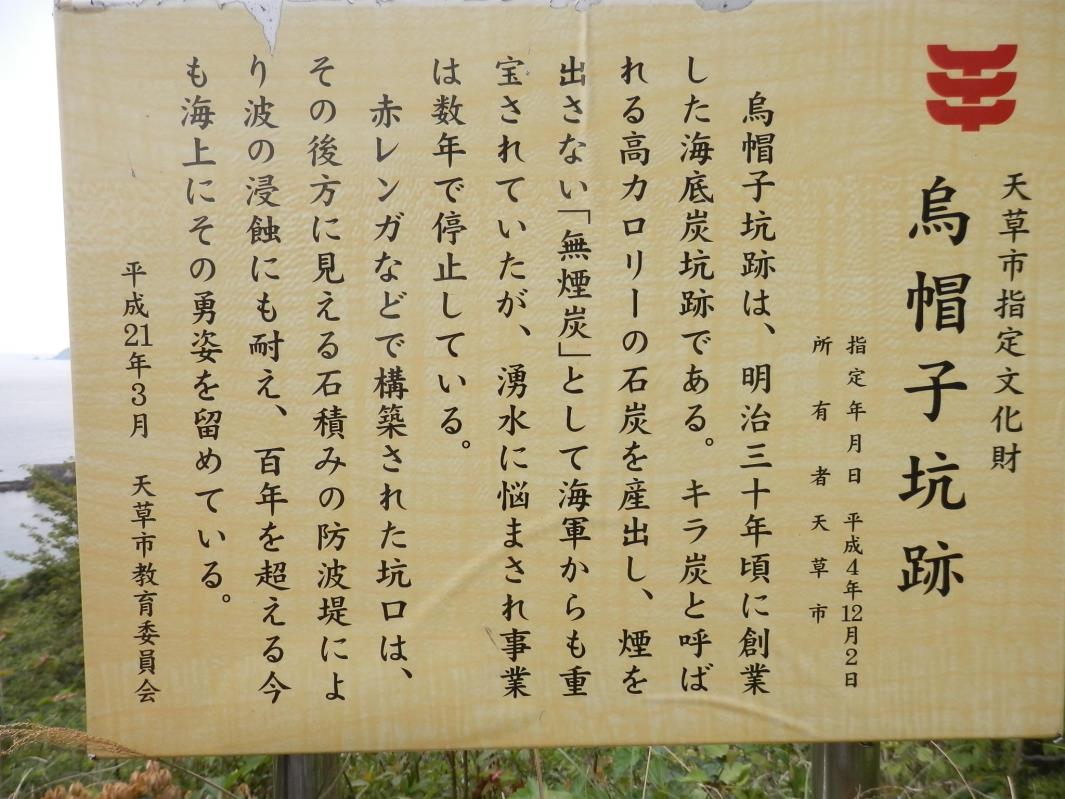 天草市指定文化財
烏帽子坑跡
指定年月日 平成4年12月2日
所有者 天草市
烏帽子坑跡は、明治三十年頃に創業
した海底炭坑跡である。キラ炭と呼ば
れる高カロリーの石炭を産出し、煙を
出さない「無煙炭」として海軍からも重
宝されていたが、湧水に悩まされ事業
は数年で停止している。
赤レンガなどで構築された坑口は、
その後方に見える石積みの防波堤によ
り波の浸蝕にも耐え、百年を超える今
も海上にその勇姿を留めている。
平成21年3月 天草市教育委員会